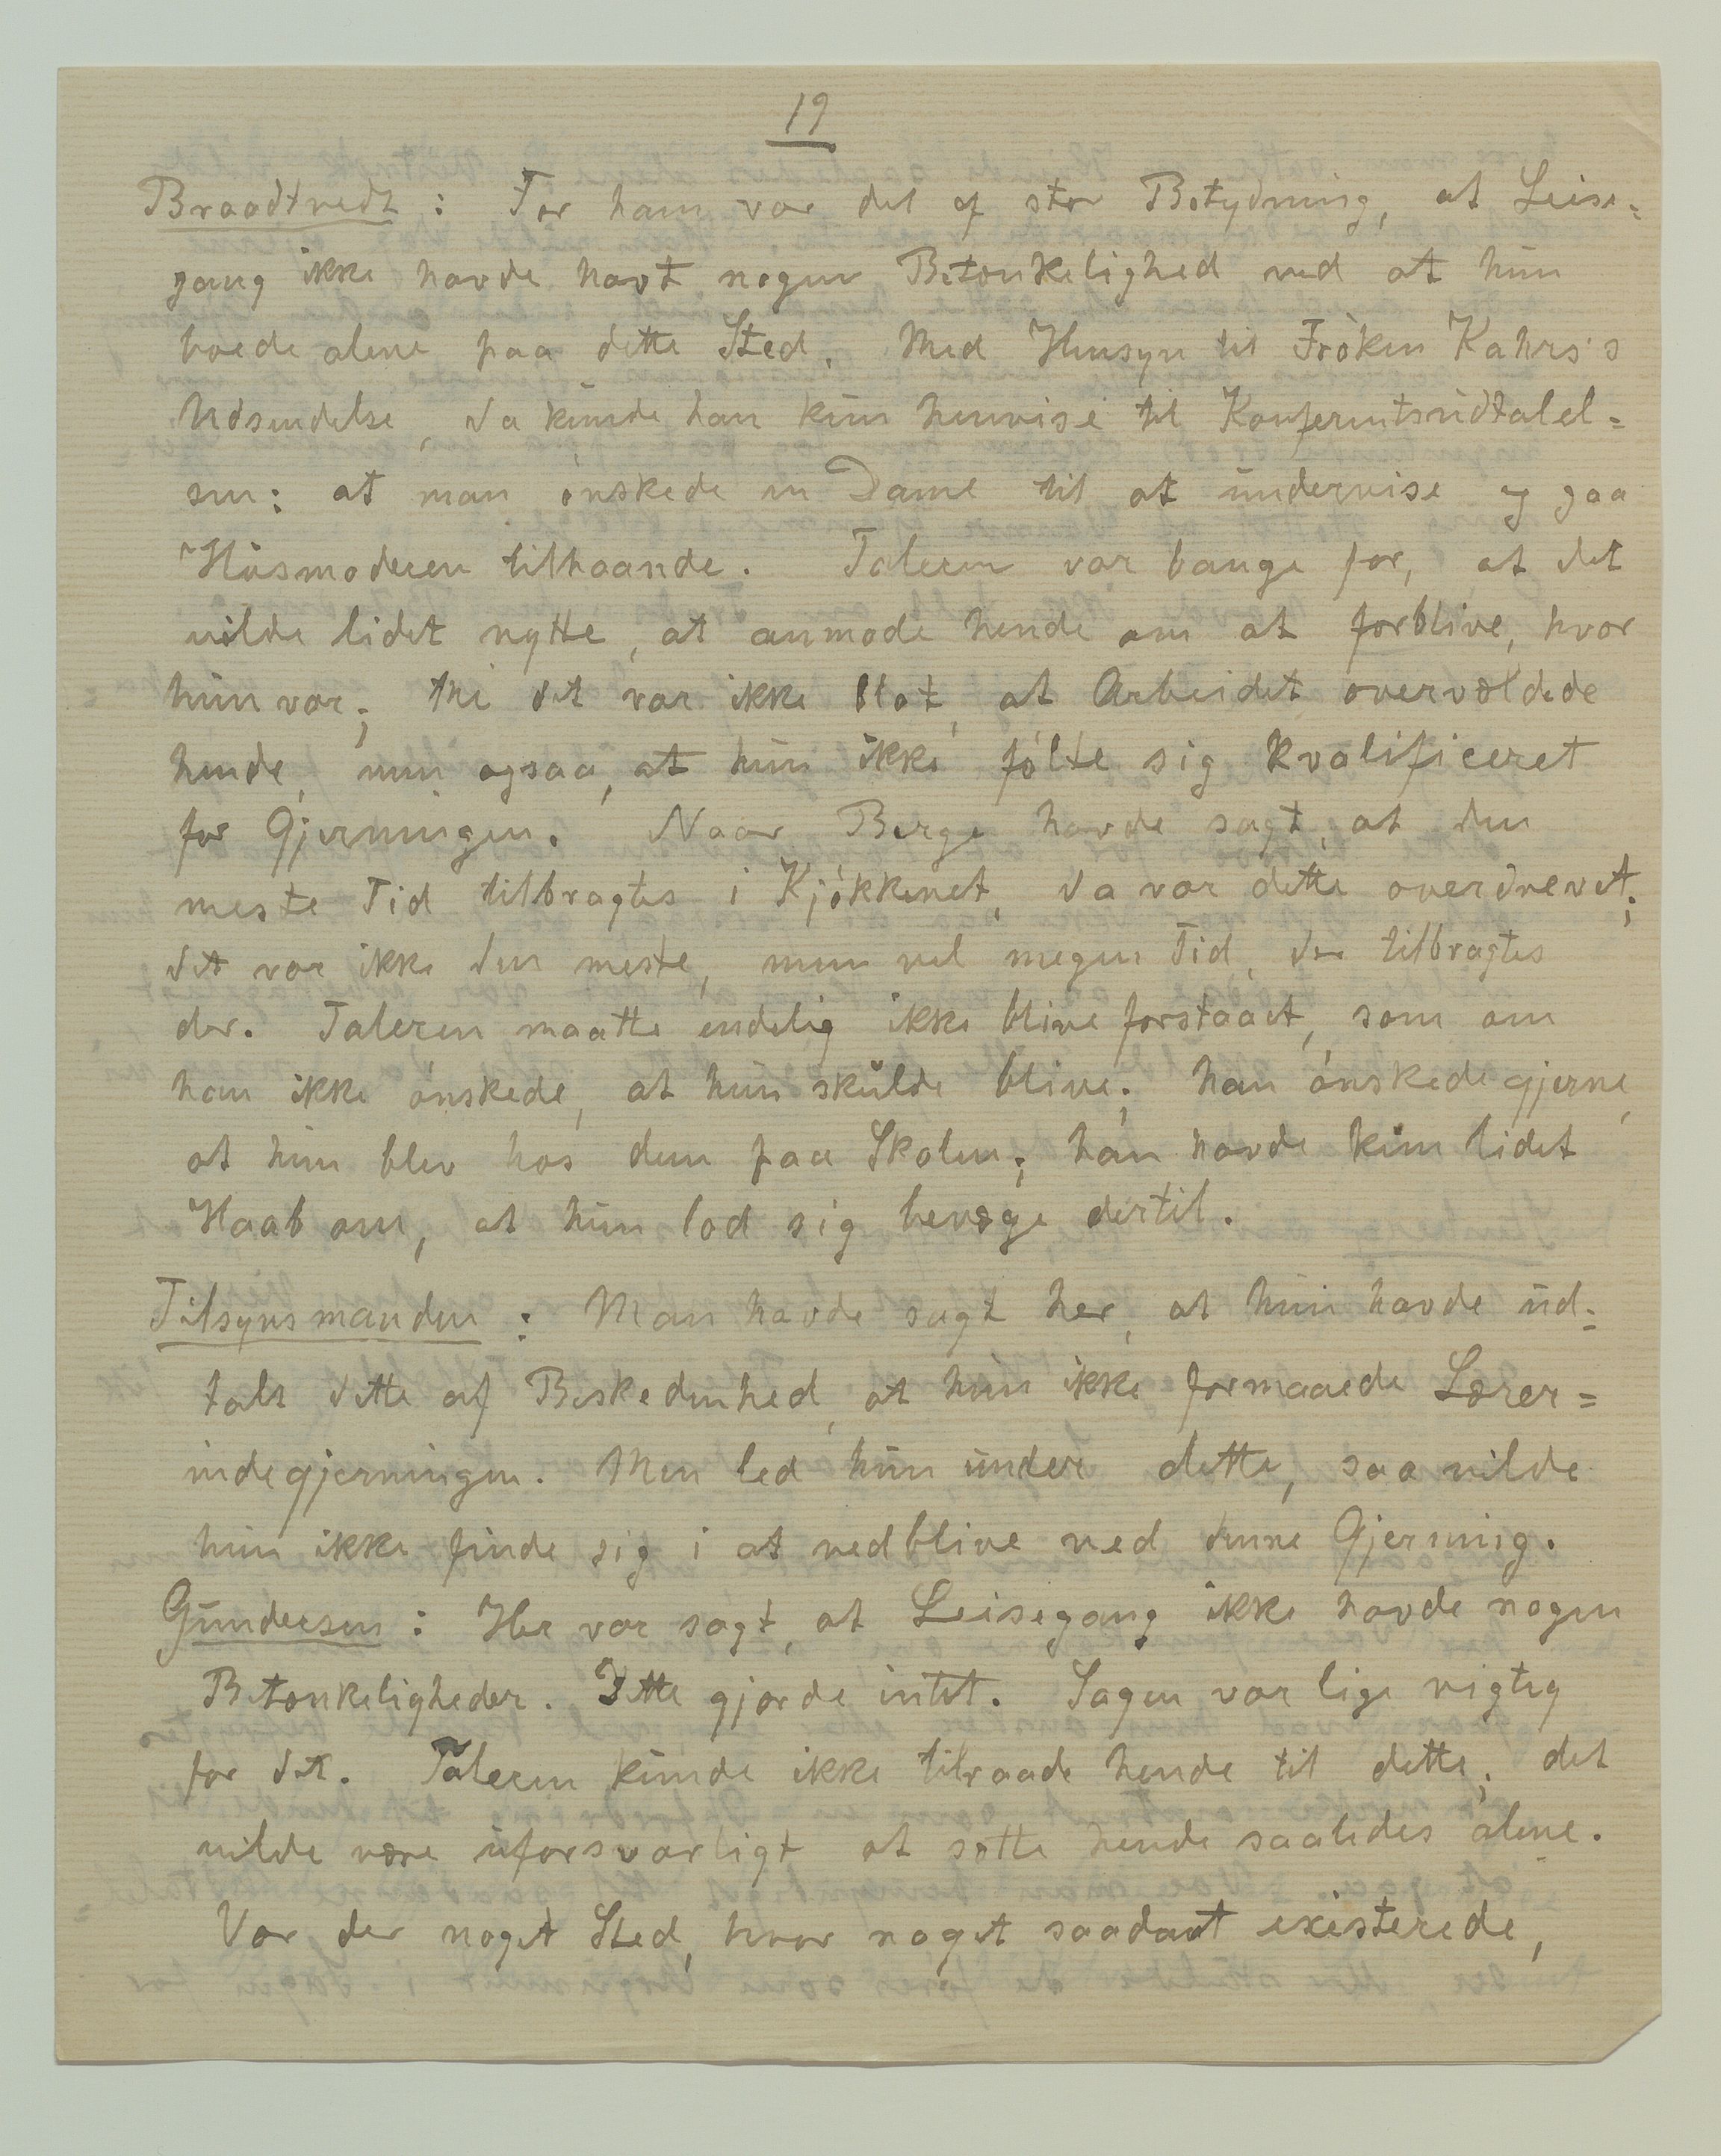 19
Braadtvedt: For ham var det af stor Betydning, at Leise=
gang ikke havde havt nogen Betænkelighed ved at hun
boede alene paa dette Sted. Med Hensyn til Frøken Kahrs's
Udsendelse, da kunde han kun henvise til Konferentsudtalel=
sen: at man ønskede en Dame til at undervise og gaa
Husmoderen tilhaande. Taleren var bange for, at det
vilde lidet nytte, at anmode hende om at forblive, hvor
hun var; thi det var ikke blot, at Arbeidet overvældede
hende, men ogsaa, at hun ikke følte sig kvalificeret
for Gjerningen. Naar Berge havde sagt, at den
meste Tid tilbragtes i Kjøkkenet, da var dette overdrevet;
det var ikke den meste, men vel megen Tid, der tilbragtes
der. Taleren maatte endelig ikke blive forstaaet, som om
han ikke ønskede, at hun skulde blive; han ønskede gjerne,
at hun blev hos dem paa Skolen; han havde kun lidet
Haab om, at hun lod sig bevæge dertil.
Tilsynsmanden: Man havde sagt her, at hun havde ud=
talt dette af Beskedenhed, at hun ikke formaaede Lærer=
indegjerningen. Men led hun under dette, saa vilde
hun ikke finde sig i at vedblive ved denne Gjerning.
Gundersen: Her var sagt, at Leisegang ikke havde nogen
Betænkeligheder. Dette gjorde intet. Sagen var lige vigtig
for det. Taleren kunde ikke tilraade hende til dette; det
vilde være uforsvarligt at sætte hende saaledes alene.
Var der noget Sted, hvor noget saadant existerede,